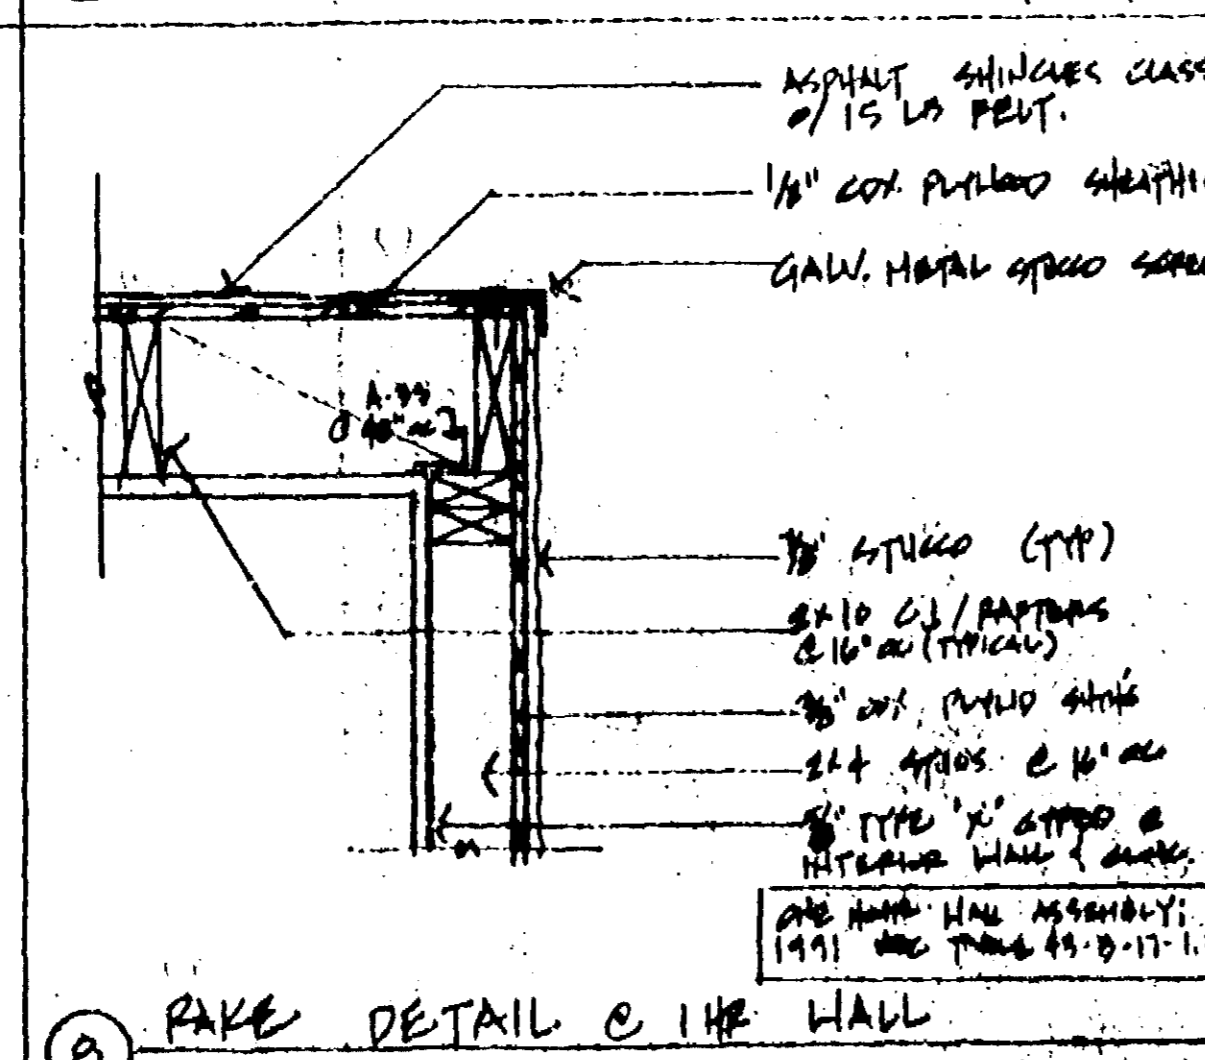 ASPHALT SHINGLES CLASS
O/ 15 LB FELT.
1/2" CDX. PLYWOOD SHEATHI
GALV. METAL STUCCO SCRE
A-35
@ 48" oc
7/8" STUCCO (TYP)
2x10 CJ / RAFTERS
@ 16" oc (TYPICAL)
3/8" CDX. PLYWD SHTH'G
2x4 STUDS @ 16" oc
5/8" TYPE "X" GYPBD @
INTERIOR WALL &
ONE HOUR WALL ASSEMBLY:
1991 UBC TABLE 43-B-17-1.
RAKE DETAIL @ 1 HR WALL